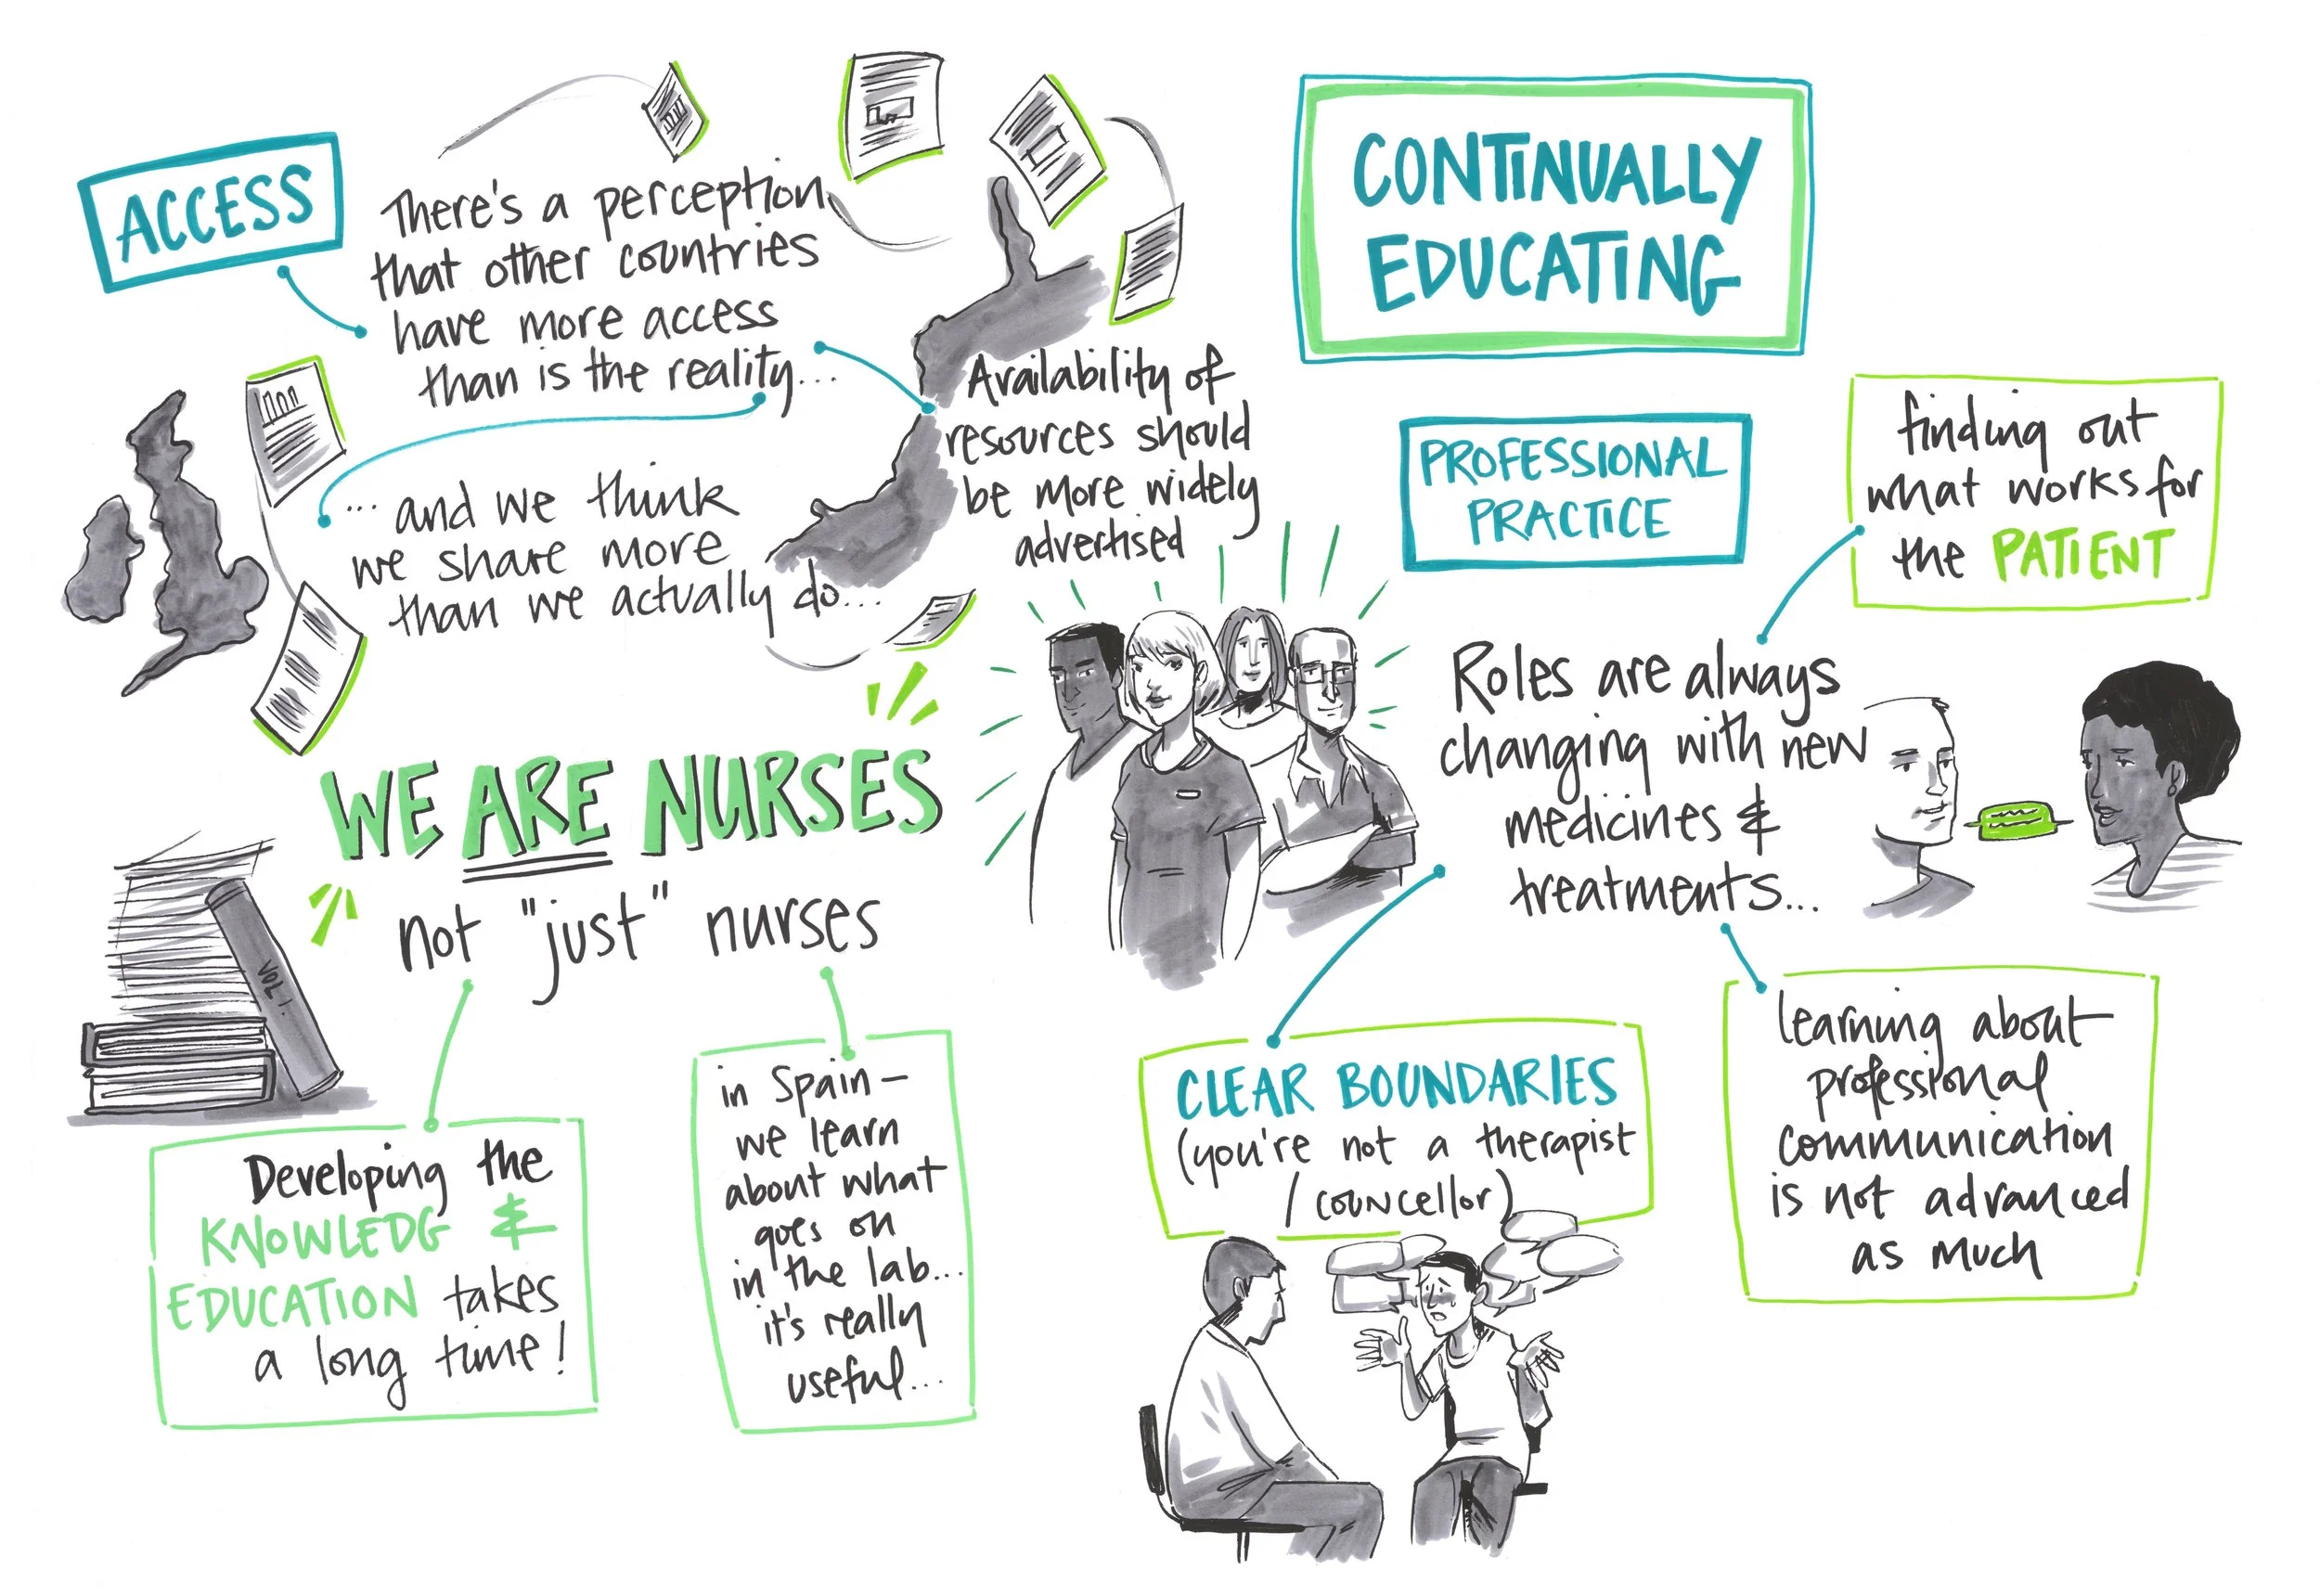 ACCESS
There's a perception
that other countries
have more access
than is the reality...
... and we think
we share more
than we actually do...
Availability of
resources should
be more widely
advertised
CONTINUALLY
EDUCATING
PROFESSIONAL
PRACTICE
finding out
what works for
the PATIENT
Roles are always
changing with new
medicines &
treatments...
WE ARE NURSES
not "just" nurses
VOL 1
Developing the
KNOWLEDG &
EDUCATION takes
a long time!
in Spain –
we learn
about what
goes on
in the lab...
it's really
useful...
CLEAR BOUNDARIES
(you're not a therapist
/ councellor)
learning about
professional
communication
is not advanced
as much